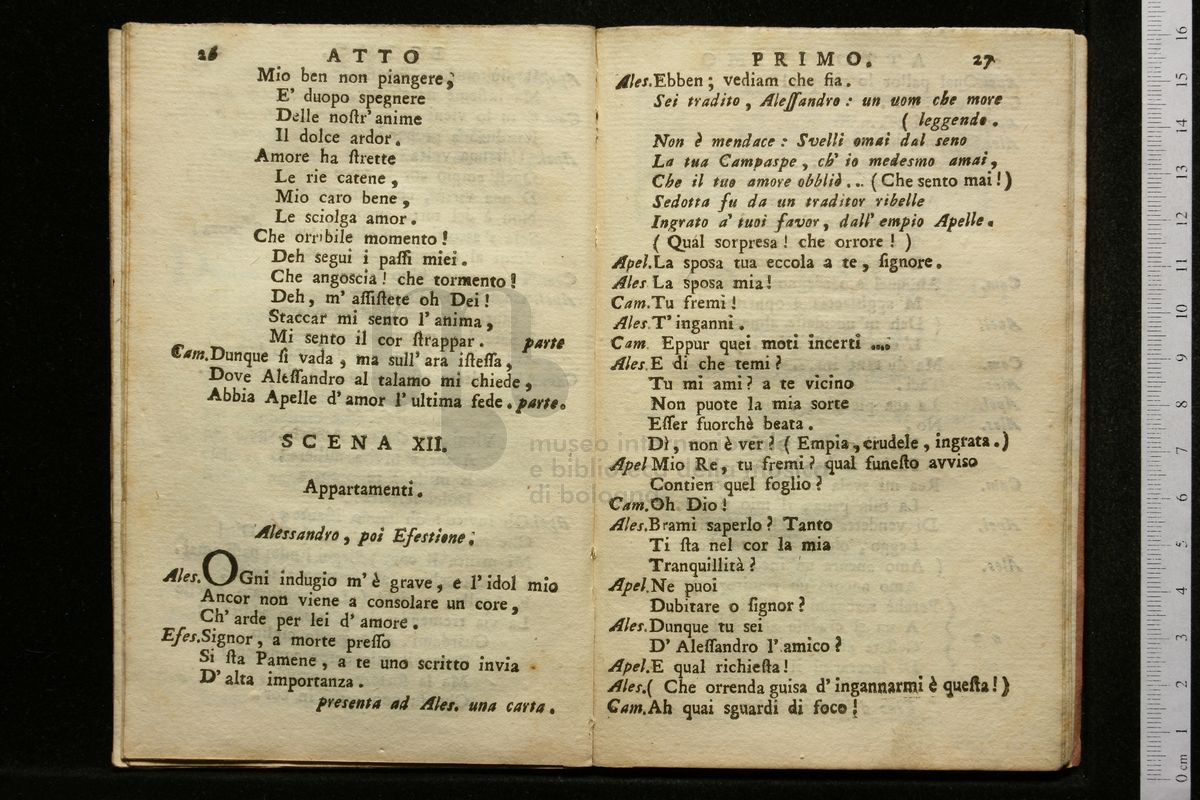 26
ATTO
Mio ben non piangere;
E' duopo spegnere
Delle noſtr' anime
Il dolce ardor.
Amore ha ſtrette
Le rie catene,
Mio caro bene,
Le sciolga amor.
Che orribile momento!
Deh segui i paſſi miei.
Che angoscia! che tormento!
Deh, m' aſſiſtete oh Dei!
Staccar mi sento l' anima,
Mi sento il cor ſtrappar. parte
Cam. Dunque ſi vada, ma sull' ara iſteſſa,
Dove Aleſſandro al talamo mi chiede,
Abbia Apelle d' amor l' ultima fede. parte.
SCENA XII.
Appartamenti.
Alessandro, poi Efestione;
Ales. OGni indugio m' è grave, e l' idol mio
Ancor non viene a consolare un core,
Ch' arde per lei d' amore.
Efes. Signor, a morte preſſo
Si ſta Pamene, a te uno scritto invia
D' alta importanza.
presenta ad Ales. una carta.
PRIMO.
27
Ales. Ebben; vediam che fia.
Sei tradito, Aleſſandro: un uom che more
( leggendo.
Non è mendace: Svelli omai dal seno
La tua Campaspe, ch' io medesmo amai,
Che il tuo amore obbliò... (Che sento mai!)
Sedotta fu da un traditor ribelle
Ingrato a' tuoi favor, dall' empio Apelle.
( Qual sorpresa! che orrore! )
Apel. La sposa tua eccola a te, ſignore.
Ales La sposa mia!
Cam. Tu fremi!
Ales. T' inganni.
Cam Eppur quei moti incerti ....
Ales. E di che temi?
Tu mi ami? a te vicino
Non puote la mia sorte
Eſſer fuorchè beata.
Dì, non è ver? ( Empia, crudele, ingrata.)
Apel Mio Re, tu fremi? qual funeſto avviso
Contien quel foglio?
Cam. Oh Dio!
Ales. Brami saperlo? Tanto
Ti ſta nel cor la mia
Tranquillità?
Apel. Ne puoi
Dubitare o ſignor?
Ales. Dunque tu sei
D' Aleſſandro l' amico?
Apel. E qual richieſta!
Ales. ( Che orrenda guisa d' ingannarmi è queſta!)
Cam. Ah quai sguardi di foco!
museo internazionale
e biblioteca della musica
di bologna
0 cm 1 2 3 4 5 6 7 8 9 10 11 12 13 14 15 16